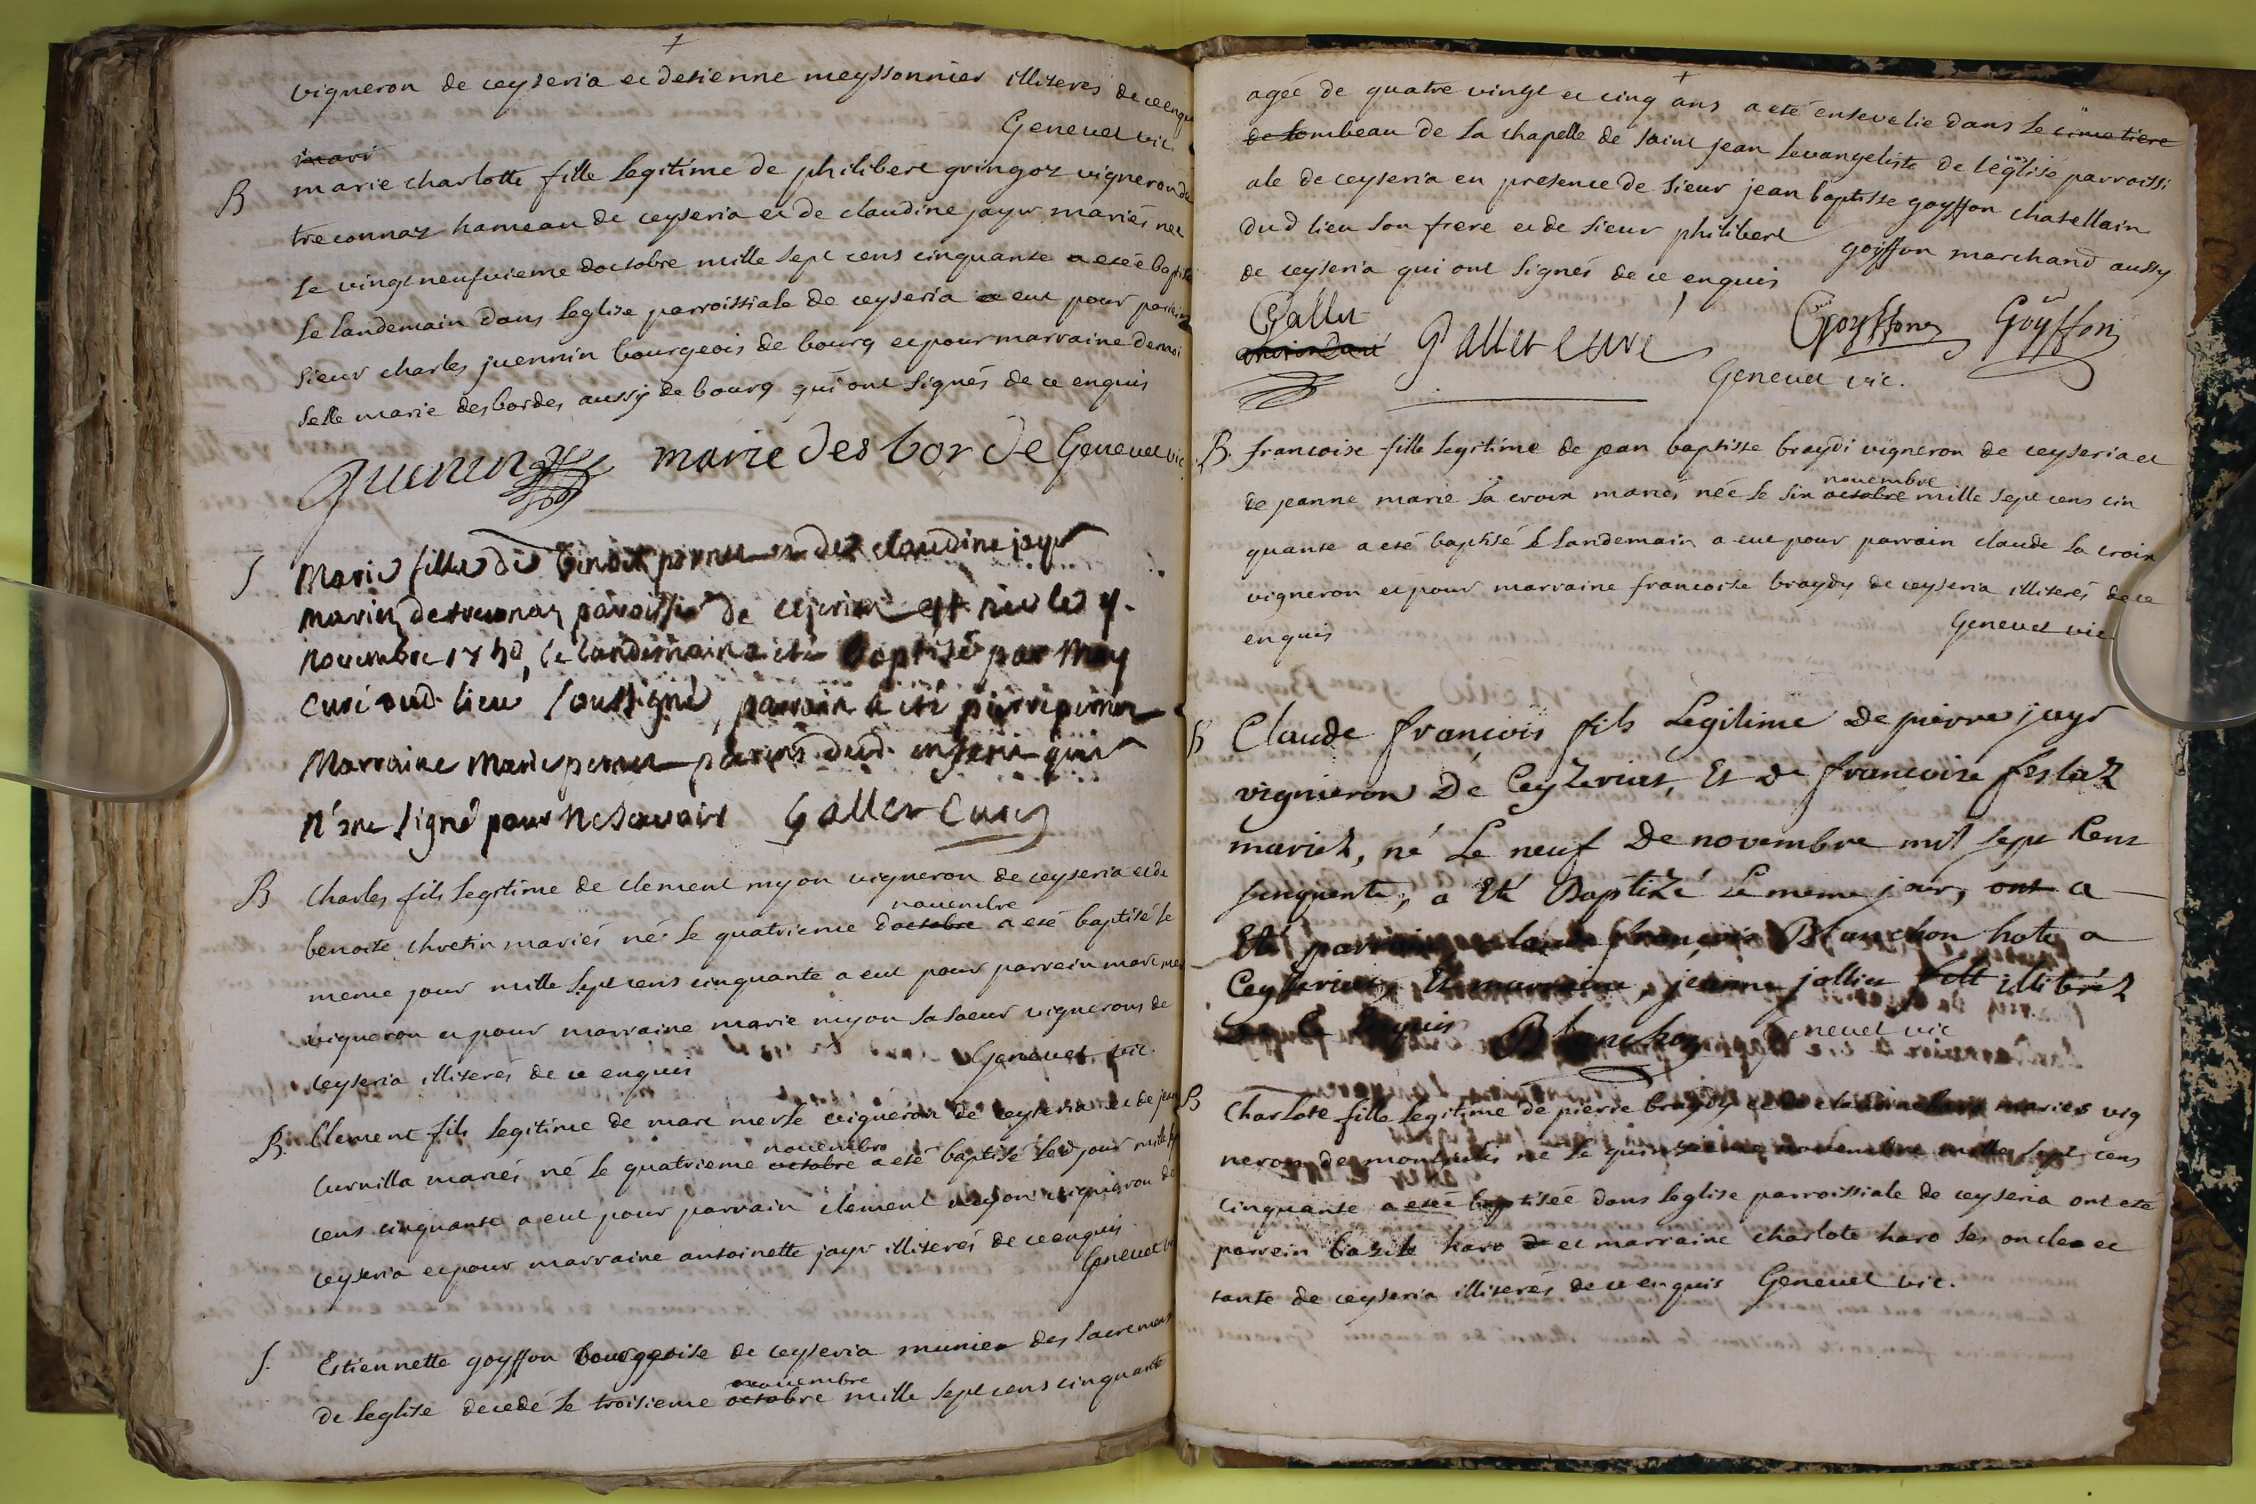 vigneron de ceyseria et detienne meyssonnier illiterés de ce enquis
Genevet vic.
mari
B marie charlotte fille legitime de philibert gringoz vigneron de
treconnaz hameau de ceyseria et de claudine jayr mariés nee
le vingt neufvieme doctobre mille sept cens cinquante a eteé baptisé
le landemain dans leglise parroissiale de ceyseria a eut pour parrain
sieur charles juennin bourgeois de bourg et pour marraine demoi
selle marie desbordes aussy de bourg qui ont signés de ce enquis
Juenin marie des bor de Genevet vic.
Marie fille de Benoit perret et de claudine jayr
mariez de treconnaz paroisse de ceyseria est née le
novembre 1750, le landemain a eté baptisé par moy
curé dud. lieu soussigné, parrain a été pierre perret
Marraine Marie perret parens dud. qui
n'ont signé pour ne savoir Gallet Curé
B Charles fils legitime de clement myon vigneron de ceyseria et de
novembre
benoite chretin mariés né le quatrieme doctobre a eté baptisé le
meme jour mille sept cens cinquante a eut pour parrein marc merle
vigneron et pour marraine marie myon sa soeur vignerons de
ceyseria illiterés de ce enquis Genevet vic.
B. Clement fils legitime de marc merle vigneron de ceyseria et de jeanne
novembre
curnilla mariés né le quatrieme octobre a eté baptisé led jour mille sept
cens cinquante a eut pour parrain clement myon vigneron de
ceyseria et pour marraine antoinette jayr illiterés de ce enquis
Genevet vic
S. Estiennette goyffon bourgeoise de ceyseria munier des sacremens
novembre
de leglise decedé le troisieme octobre mille sept cens cinquante
ageé de quatre vingt et cinq ans a eté ensevelie dans le cimetiere
de tombeau de la chapelle de saint jean levangeliste de leglise parroissi
ale de ceyseria en presence de sieur jean baptiste goyffon chatellain
dud lieu son frere et de sieur philibert goyffon marchand aussy
de ceyseria qui ont signés de ce enquis
Gallet
Gallet curé Goyffon Goyffon
Genevet vic.
B. francoise fille legitime de jean baptiste braydi vigneron de ceyseria et
novembre
de jeanne marie la croix mariés née le six octobre mille sept cens cin
quante a eté baptisé le landemain a eut pour parrain claude la croix
vigneron et pour marraine francoise braydy de ceyseria illiterés de ce
enquis Genevet vic
B Claude françois fils Legitime de pierre jayr
vignieron De Ceyzeriat, Et de francoise festaz
mariez, né Le neuf De novembre mil sept Cens
sinquente, a Eté Baptizé Le meme jour, ont a
Eté parrain, claude françois Blanchon hote a
Ceyzeriat, Et marraine, jeanne jollier illitérés
De Ce Enquis Blanchon Genevet vic
B Charlote fille legitime de pierre braydy et de claudine haro mariés vig
neron de né le novembre mille sept cens
cinquante a eteé baptiseé dans leglise parroissiale de ceyseria ont eté
parrein haro et marraine charlote haro ses oncles et
tante de ceyseria illiterés de ce enquis Genevet vic.